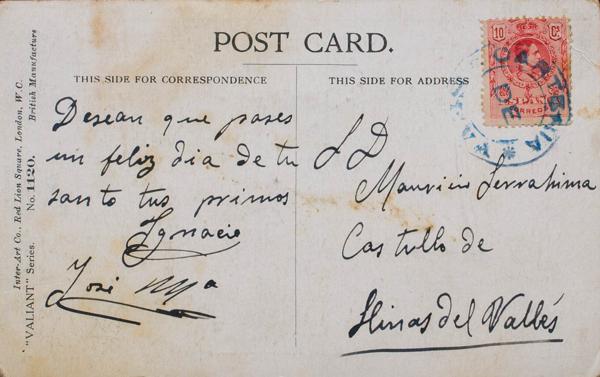 POST CARD.
THIS SIDE FOR CORRESPONDENCE
THIS SIDE FOR ADDRESS
10 Cs.
CORREOS
CARTERIA
DE
Inter-Art Co., Red Lion Square, London, W.C.
British Manufacture
"VALIANT" Series. No. 1120.
Desean que pases
un feliz dia de tu
santo tus primos
Ignacio
José
S D
Mauricio Serrahima
Castillo de
Llinas del Vallés